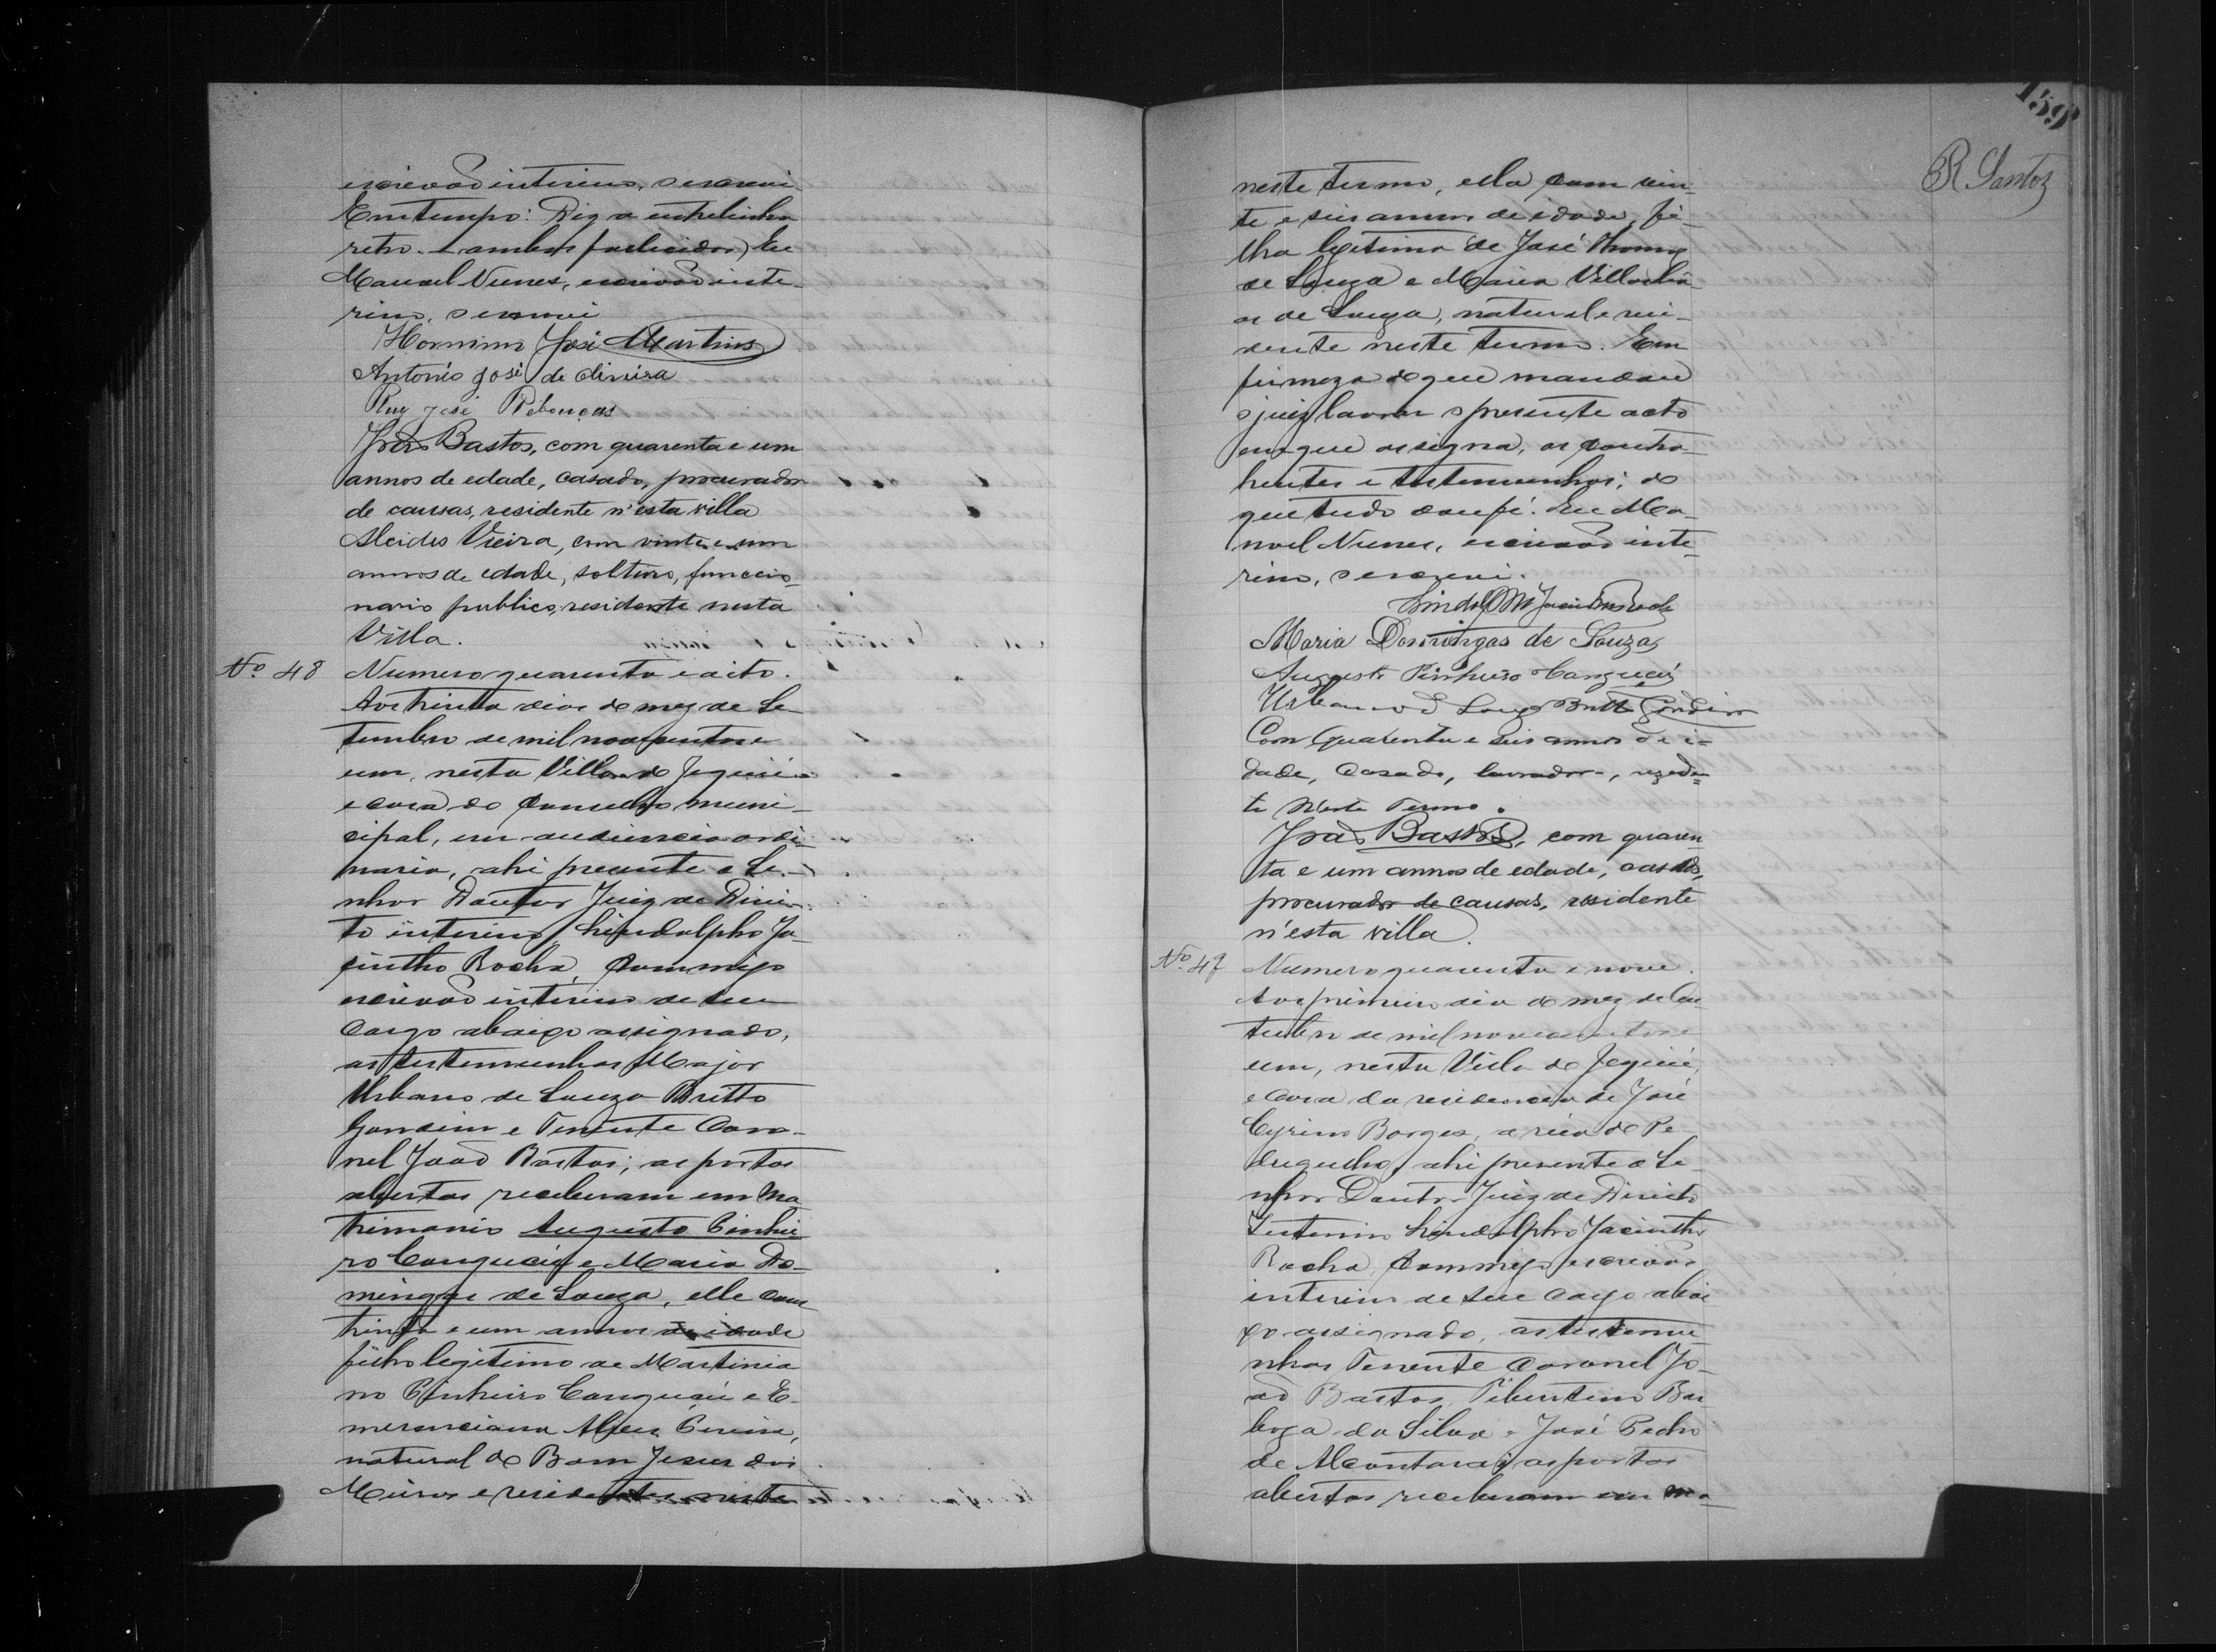 escrivão interino, o escrevi.
Em tempo: Diz a entrelinha
retro. (ambos fallecidos) Eu
Manoel Nunes, escrivão inte-
rino, o escrevi
José Martins
Antonio José de Oliveira
Ruy José Rebouças
João Bastos, com quarenta e um
annos de edade, casado, procurador
de causas, residente n'esta villa
Alcides Vieira, com vinte e um
annos de edade, solteiro, funccio-
nario publico, residente nesta
Villa.
Nº 48 Numero quarenta e oito.
Aos trinta dias do mez de Se-
tembro de mil novecentos e
um, nesta Villa de Jequié
e casa do Conselho muni-
cipal, em audiencia ordi-
naria, ahi presente o Se-
nhor Doutor Juiz de Direi-
to interino Lindolpho Ja-
cintho Rocha, commigo
escrivão interino de seu
cargo abaixo assignado,
as testemunhas Major
Urbano de Souza Britto
Gondim e Tenente Coro-
nel João Bastos; as portas
abertas receberam em ma
trimonio Augusto Pinhei
ro Canguçú e Maria Do-
mingas de Souza, elle com
trinta e um annos de idade
filho legitimo de Martinia
no Pinheiro Canguçú e E-
merenciana Alves Pereira,
natural do Bom Jesus dos
Meiras e residente neste
159
R Santos
neste termo, ella com vin-
te e seis annos de idade, fi-
lha legitima de José Thomaz
de Souza e Maria
de Souza, natural e resi-
dente neste termo. Em
firmeza do que mandou
o juiz lavrar o presente acto
em que assigna, os contra-
hentes e testemunhas; do
que tudo dou fé. Eu Ma-
noel Nunes, escrivão inte-
rino, o escrevi.
Lindolpho Jacintho Rocha
Maria Domingas de Souza
Augusto Pinheiro Canguçú
Urbano de Souza Britto Gondim
Com quarenta e seis annos de i=
dade, casado, lavrador, reziden=
te neste Termo.
João Bastos, com quaren
ta e um annos de edade, casado,
procurador de causas, residente
n'esta villa.
Nº 49 Numero quarenta e nove.
Aos primeiro dia do mez de Ou
tubro de mil novecentos e
um, nesta Villa de Jequié,
e casa da residencia de José
Cyrino Borges, a rua do Pe-
dregulho, ahi presente o Se-
nhor Doutor Juiz de Direito
Interino Lindolpho Jacintho
Rocha, commigo escrivão
interino de seu cargo abai
xo assignado, as testemu-
nhas Tenente Coronel Jo-
ão Bastos, Tiburtino Bar
boza da Silva e José Pedro
de Alcantara; as portas
abertas receberam em ma-